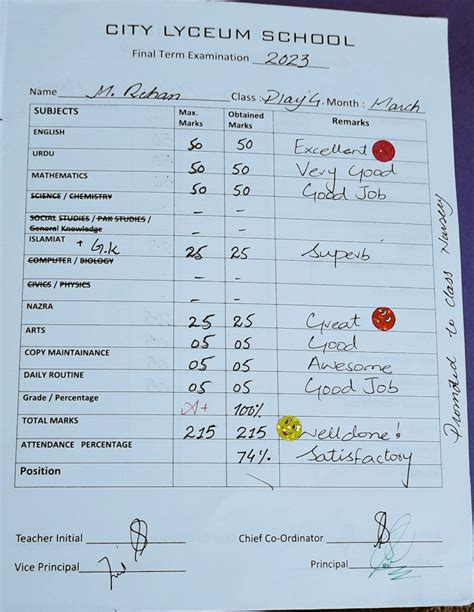 CITY LYCEUM SCHOOL
Final Term Examination 2023
Name M. Rehan Class : Play'G. Month : March
SUBJECTS Max. Marks Obtained Marks Remarks
ENGLISH 50 50 Excellent
URDU 50 50 Very Good
MATHEMATICS 50 50 Good Job
SCIENCE / CHEMISTRY - -
SOCIAL STUDIES / PAK STUDIES /
General Knowledge - -
ISLAMIAT + G.K 25 25 Superb
COMPUTER / BIOLOGY - -
CIVICS / PHYSICS - -
NAZRA 25 25 Great
ARTS 05 05 Good
COPY MAINTAINANCE 05 05 Awesome
DAILY ROUTINE 05 05 Good Job
Grade / Percentage A+ 100%
TOTAL MARKS 215 215 Welldone!
ATTENDANCE PERCENTAGE 74% Satisfactory
Position
Teacher Initial Chief Co-Ordinator
Vice Principal Principal
Promoted to class Nursery